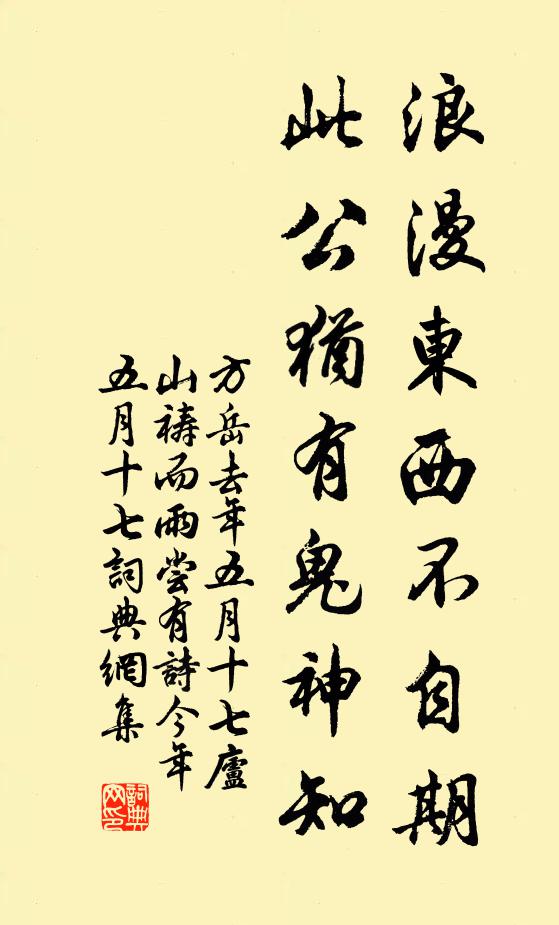 浪漫東西不自期
此公猶有鬼神知
方岳去年五月十七廬
山禱而雨嘗有詩今年
五月十七詞典網集
詞典
网印